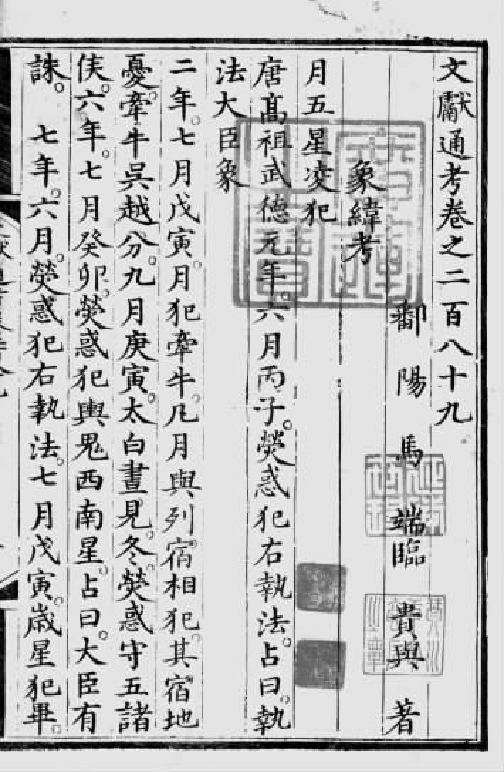 文獻通考卷之二百八十九
鄱陽馬端臨貴與著
象緯考
月五星凌犯
唐髙祖武德元年。六月丙子。熒惑犯右執法。占曰。執
法大臣象
二年。七月戊寅。月犯牽牛。凡月與列宿相犯。其宿地
憂。牽牛吳越分。九月庚寅。太白晝見。冬。熒惑守五諸
侯。六年。七月癸卯。熒惑犯輿鬼西南星。占曰。大臣有
誅。七年。六月。熒惑犯右執法。七月戊寅。歲星犯畢。